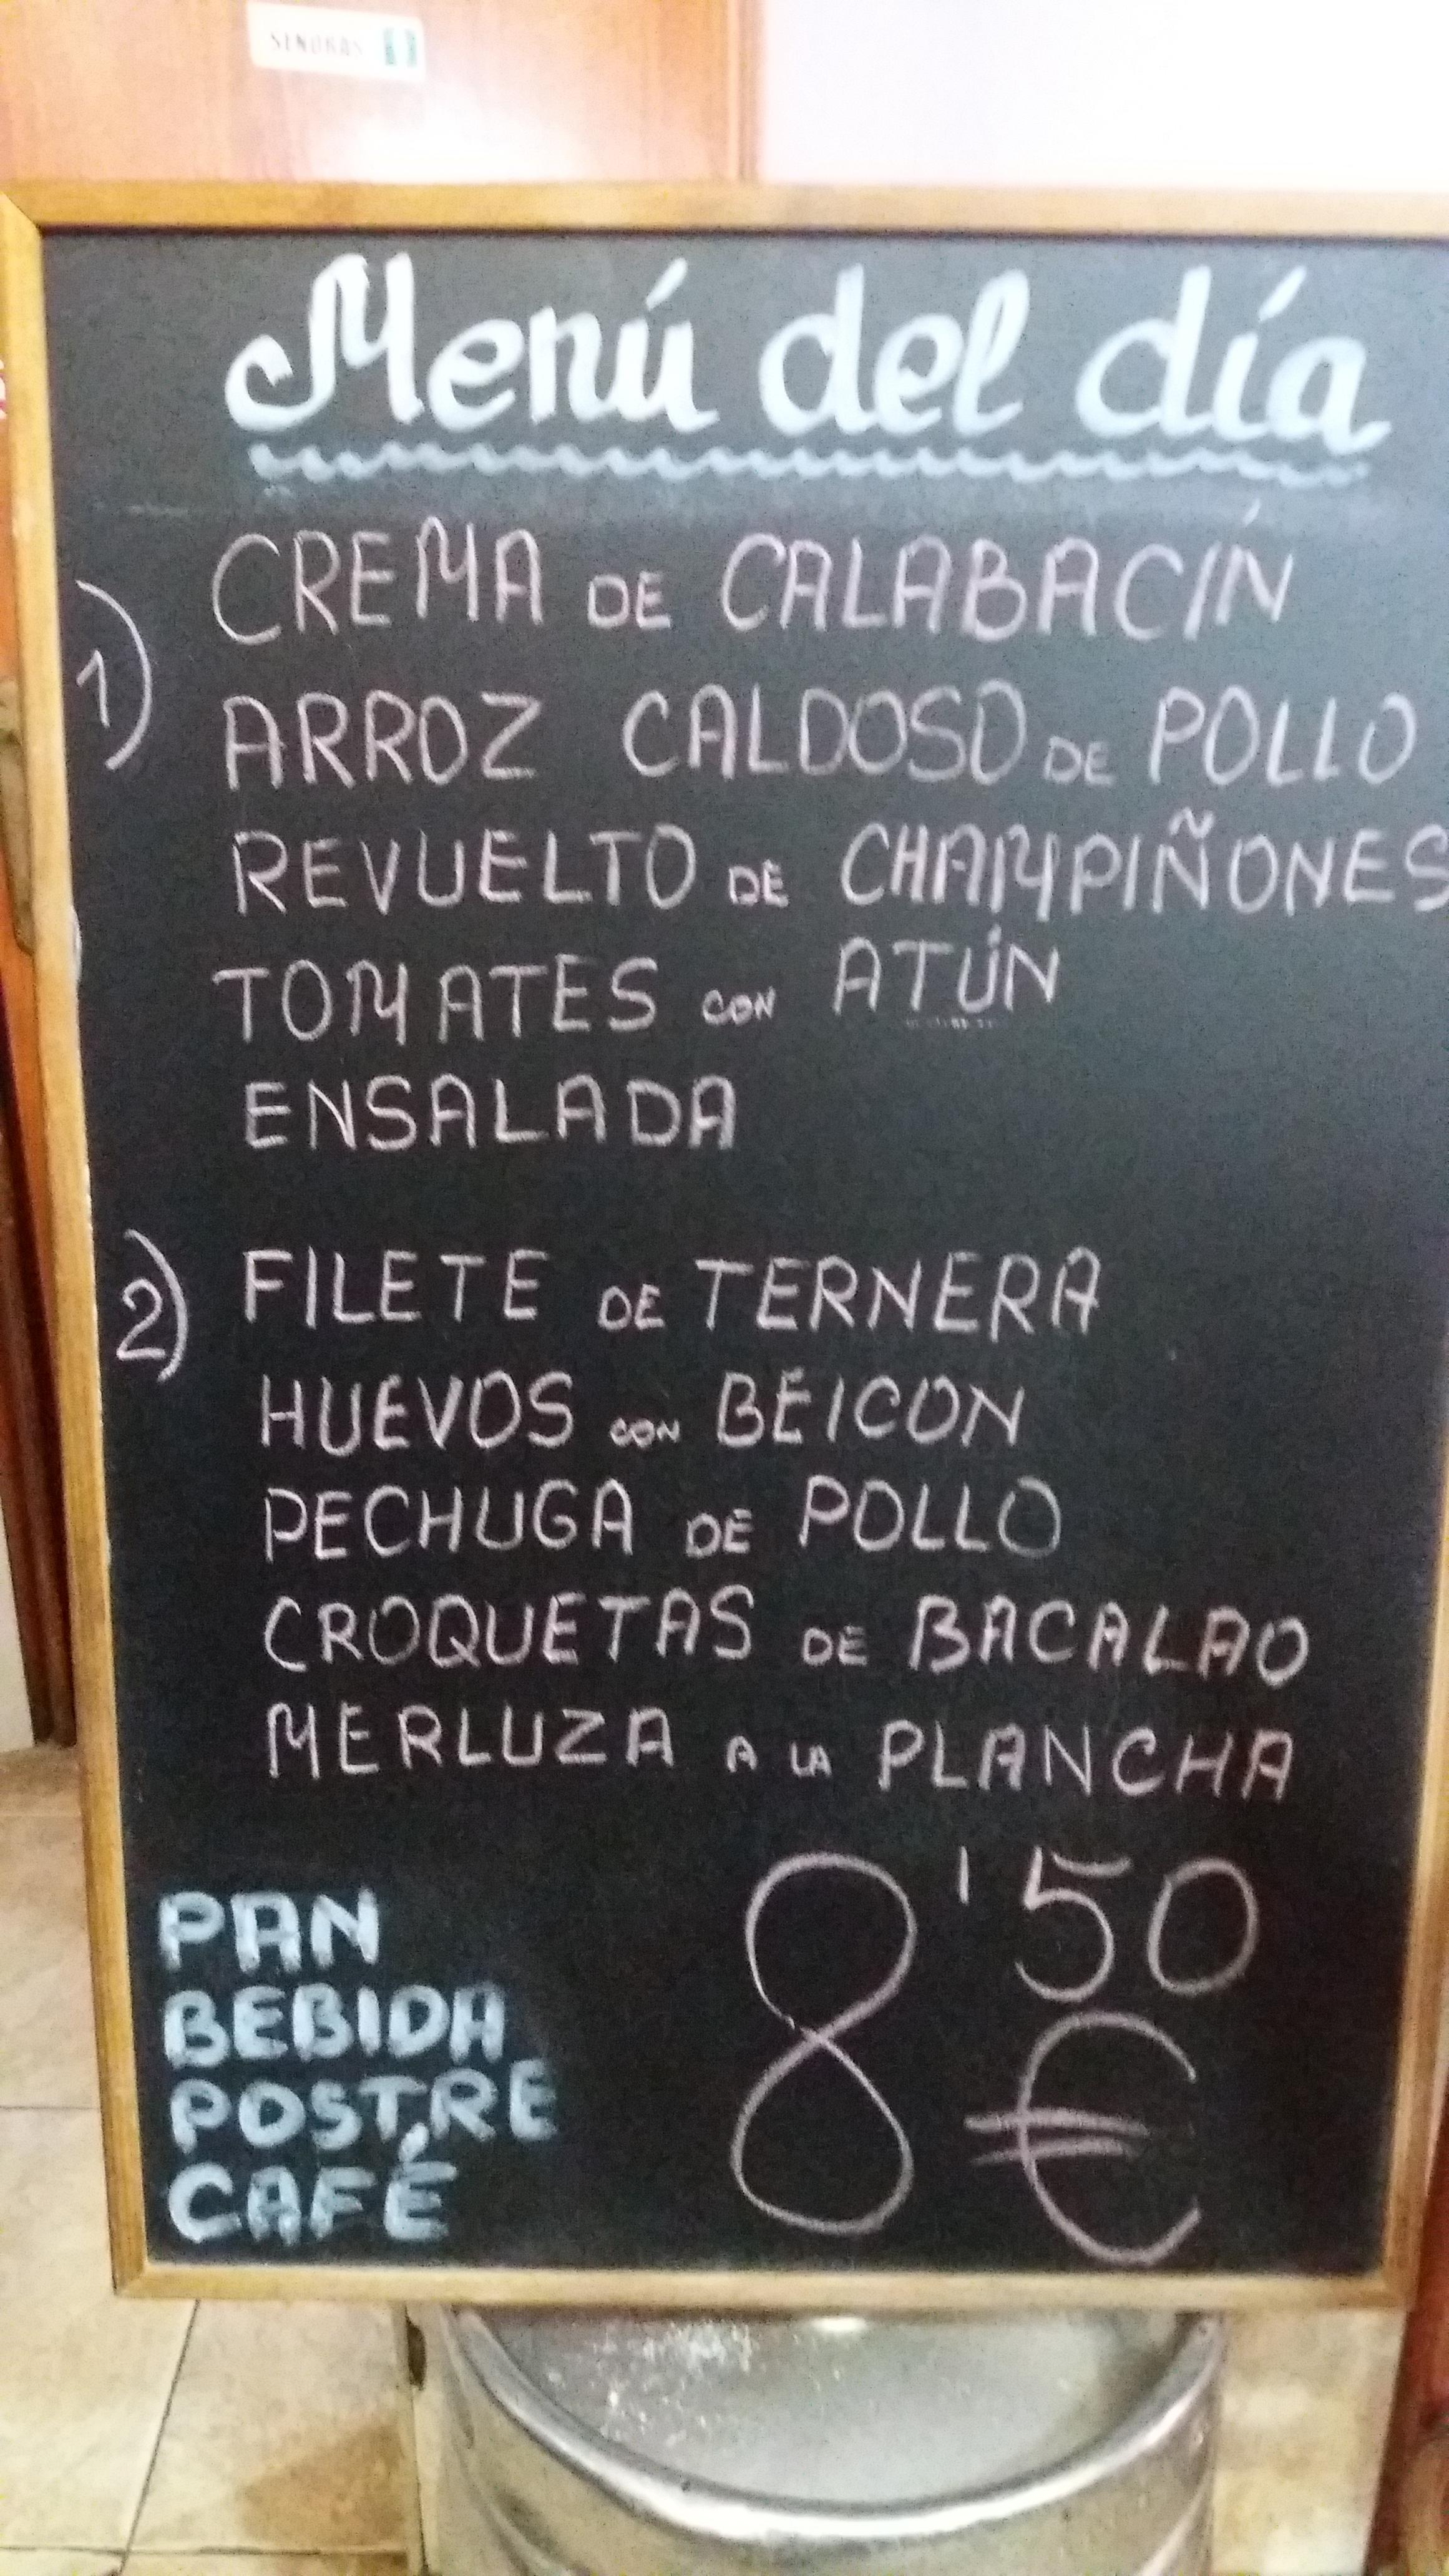 SEÑORAS
Menú del día
1)
CREMA DE CALABACÍN
ARROZ CALDOSO DE POLLO
REVUELTO DE CHAMPIÑONES
TOMATES CON ATÚN
ENSALADA
2)
FILETE DE TERNERA
HUEVOS CON BEICON
PECHUGA DE POLLO
CROQUETAS DE BACALAO
MERLUZA A LA PLANCHA
PAN
BEBIDA
POSTRE
CAFÉ
8'50
€